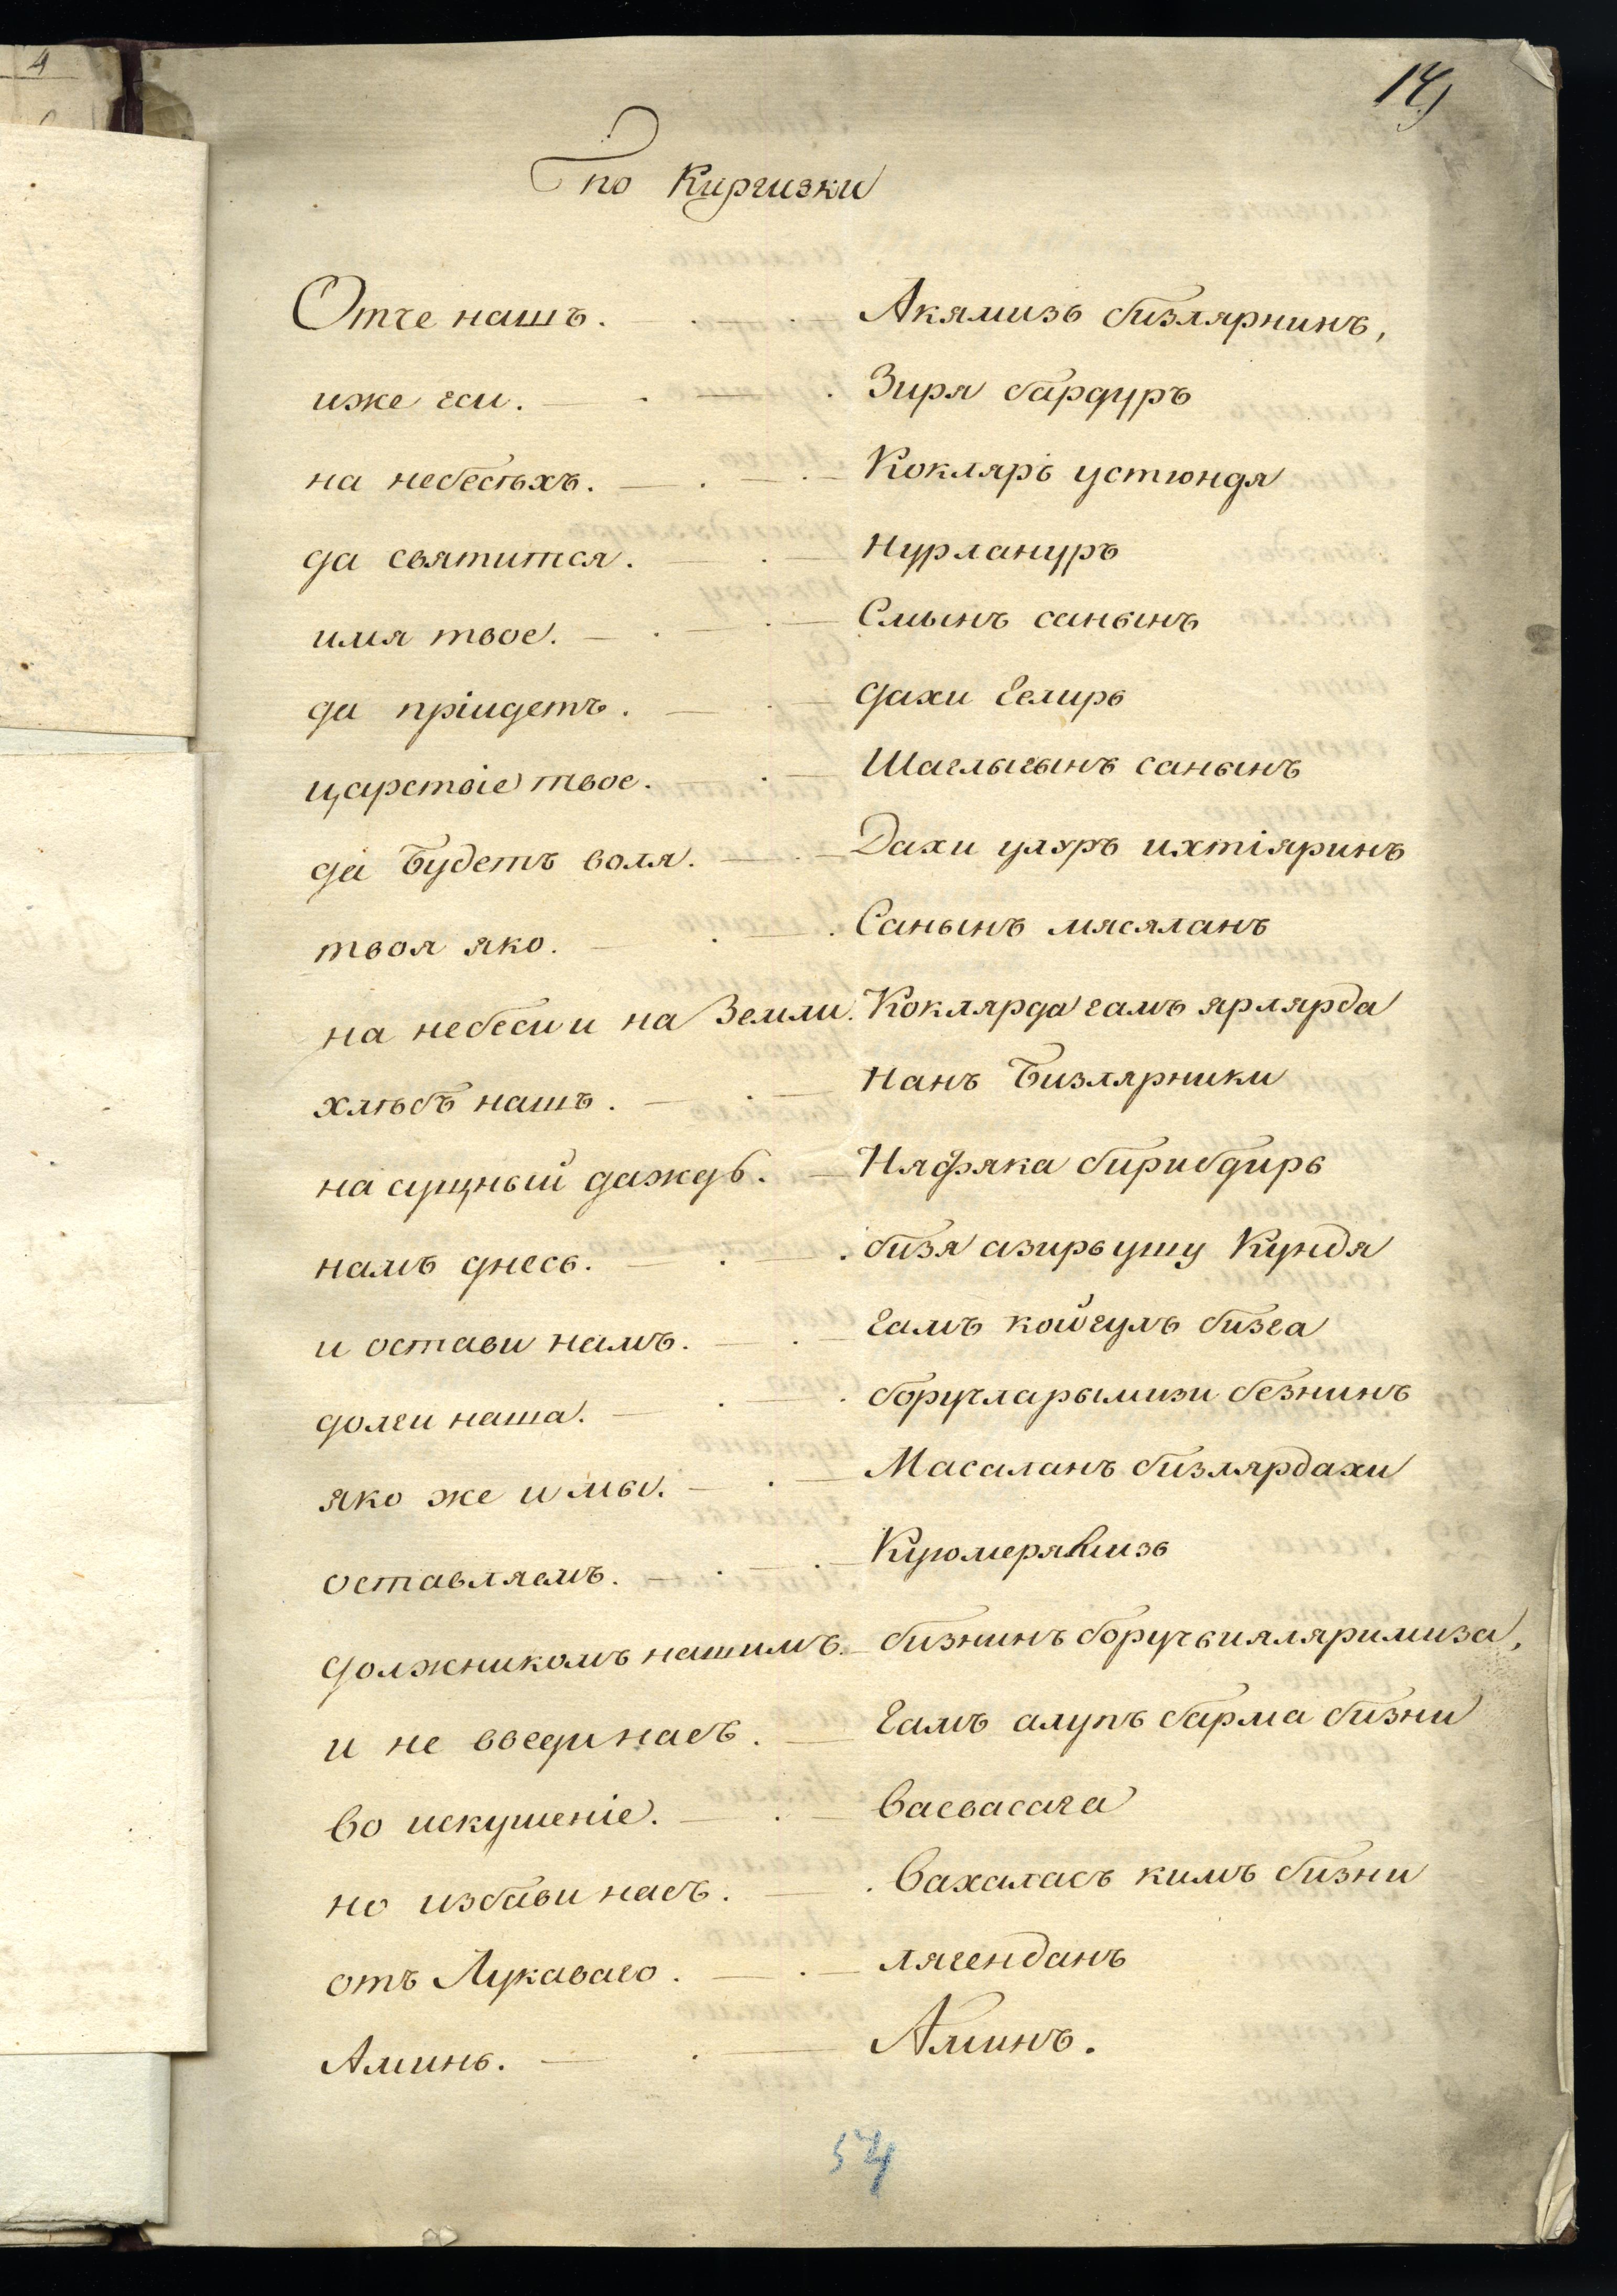 14
по Киргизки
Отче нашъ. Акямизъ бизлярнинъ,
иже еси. Зиря бардуръ
на небесѣхъ. Кокляръ устюндя
да святится. нурлануръ
имя твое. Смынъ санынъ
да пріидетъ. дахи гелиръ
царствіе твое. Шаглыгынъ санынъ
да будетъ воля. Дахи улуръ ихтіяринъ
твоя яко. Санынъ мясяланъ
на небеси и на Земли. Коклярда гамъ ярлярда
хлѣбъ нашъ. нанъ бизлярники
на сущный даждь. Няфяка бирибдиръ
намъ днесь. бизя азиръ ушу Кундя
и остави намъ. гамъ койгулъ бизга
долги наша. боручларымизи безнинъ
яко же и мы. Масаланъ бизлярдахи
оставляемъ.
должникомъ нашимъ. бизнинъ боручьиляляримиза,
и не введи насъ. гамъ алупъ барма бизни
во искушеніе. васвасага
но избави насъ. вахаласъ кимъ бизни
отъ Лукаваго. лягенданъ
Аминь. Аминъ.
54